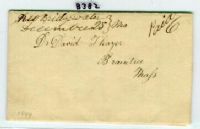 8382
No. Bridgewater
December 25 Ms
Paid 6
Dr David Thayer
Braintree
Mass